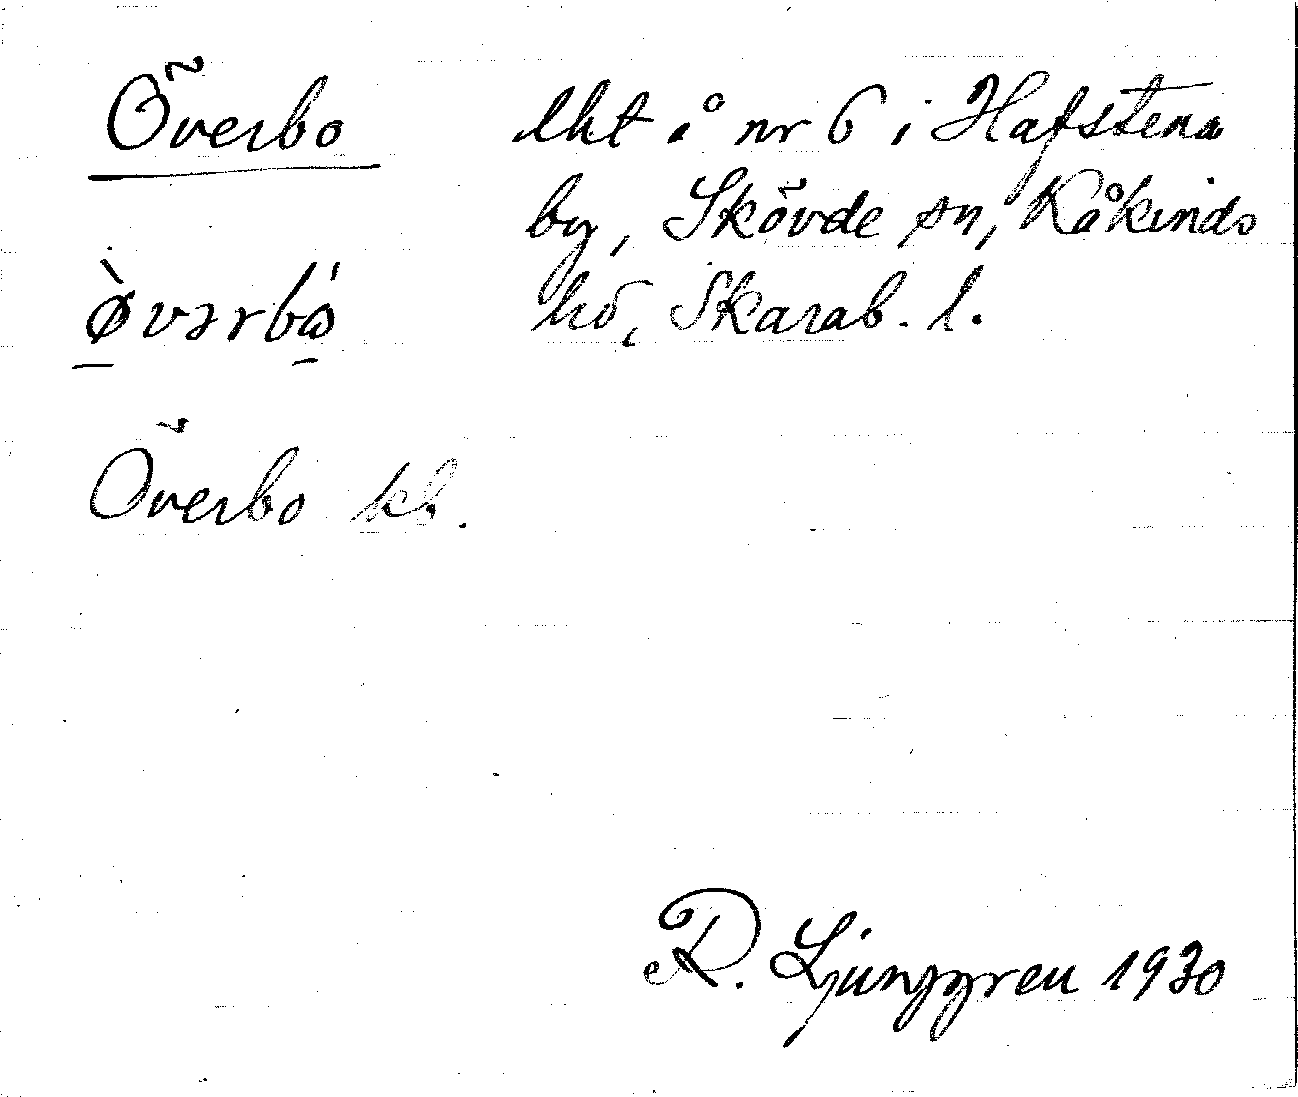 Överbo
lht å nr 6 i Hafstena
by, Skövde sn, Kåkinds
hd, Skarab. l.
Överbo kb.
R. Ljunggren 1930